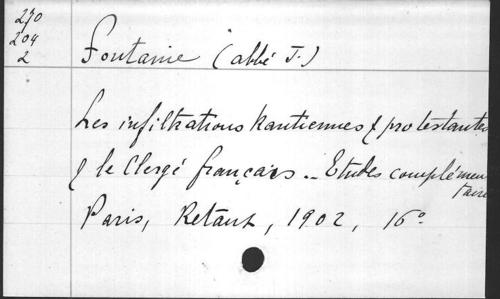 270
204
2
Fontaine (abbé J.)
Les infiltrations kantiennes & protestantes
& le Clergé français _ Etudes complémen
taires
Paris, Retaux, 1902, 16º